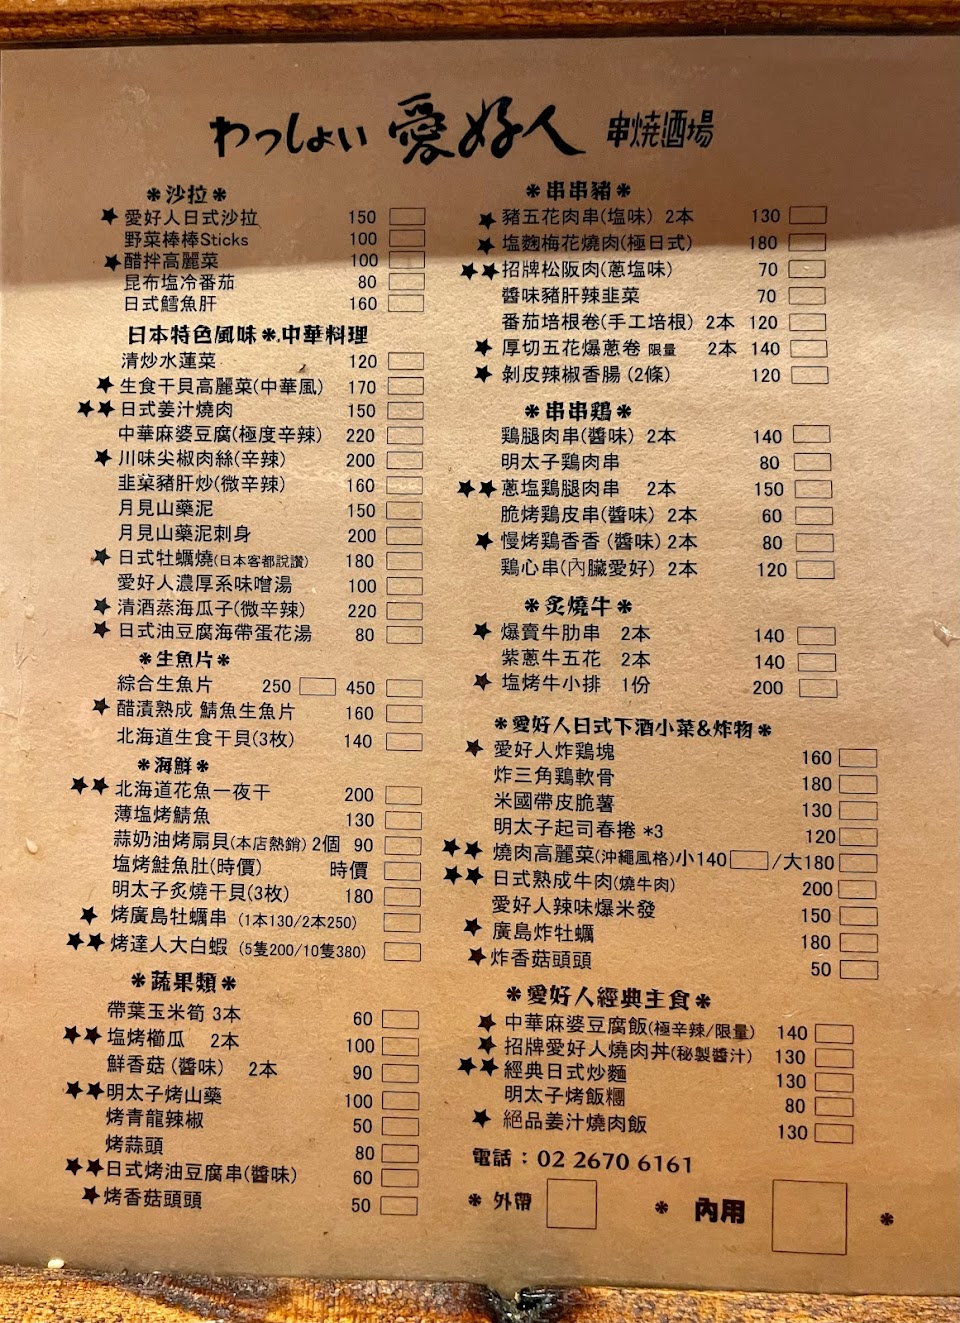 わっしょい 愛好人 串燒酒場
*沙拉*
★愛好人日式沙拉 150
野菜棒棒Sticks 100
★醋拌高麗菜 100
昆布塩冷番茄 80
日式鱈魚肝 160
日本特色風味*.中華料理
清炒水蓮菜 120
★生食干貝高麗菜(中華風) 170
★★日式姜汁燒肉 150
中華麻婆豆腐(極度辛辣) 220
★川味尖椒肉絲(辛辣) 200
韭菜豬肝炒(微辛辣) 160
月見山藥泥 150
月見山藥泥刺身 200
★日式牡蠣燒(日本客都說讚) 180
愛好人濃厚系味噌湯 100
★清酒蒸海瓜子(微辛辣) 220
★日式油豆腐海帶蛋花湯 80
*生魚片*
綜合生魚片 250 450
★醋漬熟成 鯖魚生魚片 160
北海道生食干貝(3枚) 140
*海鮮*
★★北海道花魚一夜干 200
薄塩烤鯖魚 130
蒜奶油烤扇貝(本店熱銷) 2個 90
塩烤鮭魚肚(時價) 時價
明太子炙燒干貝(3枚) 180
★烤廣島牡蠣串 (1本130/2本250)
★★烤達人大白蝦 (5隻200/10隻380)
*蔬果類*
帶葉玉米筍 3本 60
★★塩烤櫛瓜 2本 100
鮮香菇(醬味) 2本 90
★★明太子烤山藥 100
烤青龍辣椒 50
烤蒜頭 80
★★日式烤油豆腐串(醬味) 60
★烤香菇頭頭 50
*串串豬*
★豬五花肉串(塩味) 2本 130
★塩麴梅花燒肉(極日式) 180
★★招牌松阪肉(蔥塩味) 70
醬味豬肝辣韭菜 70
番茄培根卷(手工培根) 2本 120
★厚切五花爆蔥卷 限量 2本 140
★剝皮辣椒香腸 (2條) 120
*串串鶏*
鶏腿肉串(醬味) 2本 140
明太子鶏肉串 80
★★蔥塩鶏腿肉串 2本 150
脆烤鶏皮串(醬味) 2本 60
★慢烤鶏香香 (醬味) 2本 80
鶏心串(內臟愛好) 2本 120
*炙燒牛*
★爆賣牛肋串 2本 140
紫蔥牛五花 2本 140
★塩烤牛小排 1份 200
*愛好人日式下酒小菜&炸物*
★愛好人炸鶏塊 160
炸三角鶏軟骨 180
米國帶皮脆薯 130
明太子起司春捲 *3 120
★★燒肉高麗菜(沖繩風格)小140 /大180
★★日式熟成牛肉(燒牛肉) 200
愛好人辣味爆米發 150
★廣島炸牡蠣 180
★炸香菇頭頭 50
*愛好人經典主食*
★中華麻婆豆腐飯(極辛辣/限量) 140
★招牌愛好人燒肉丼(秘製醬汁) 130
★★經典日式炒麵 130
明太子烤飯糰 80
★絕品姜汁燒肉飯 130
電話：02 2670 6161
* 外帶 * 內用 *